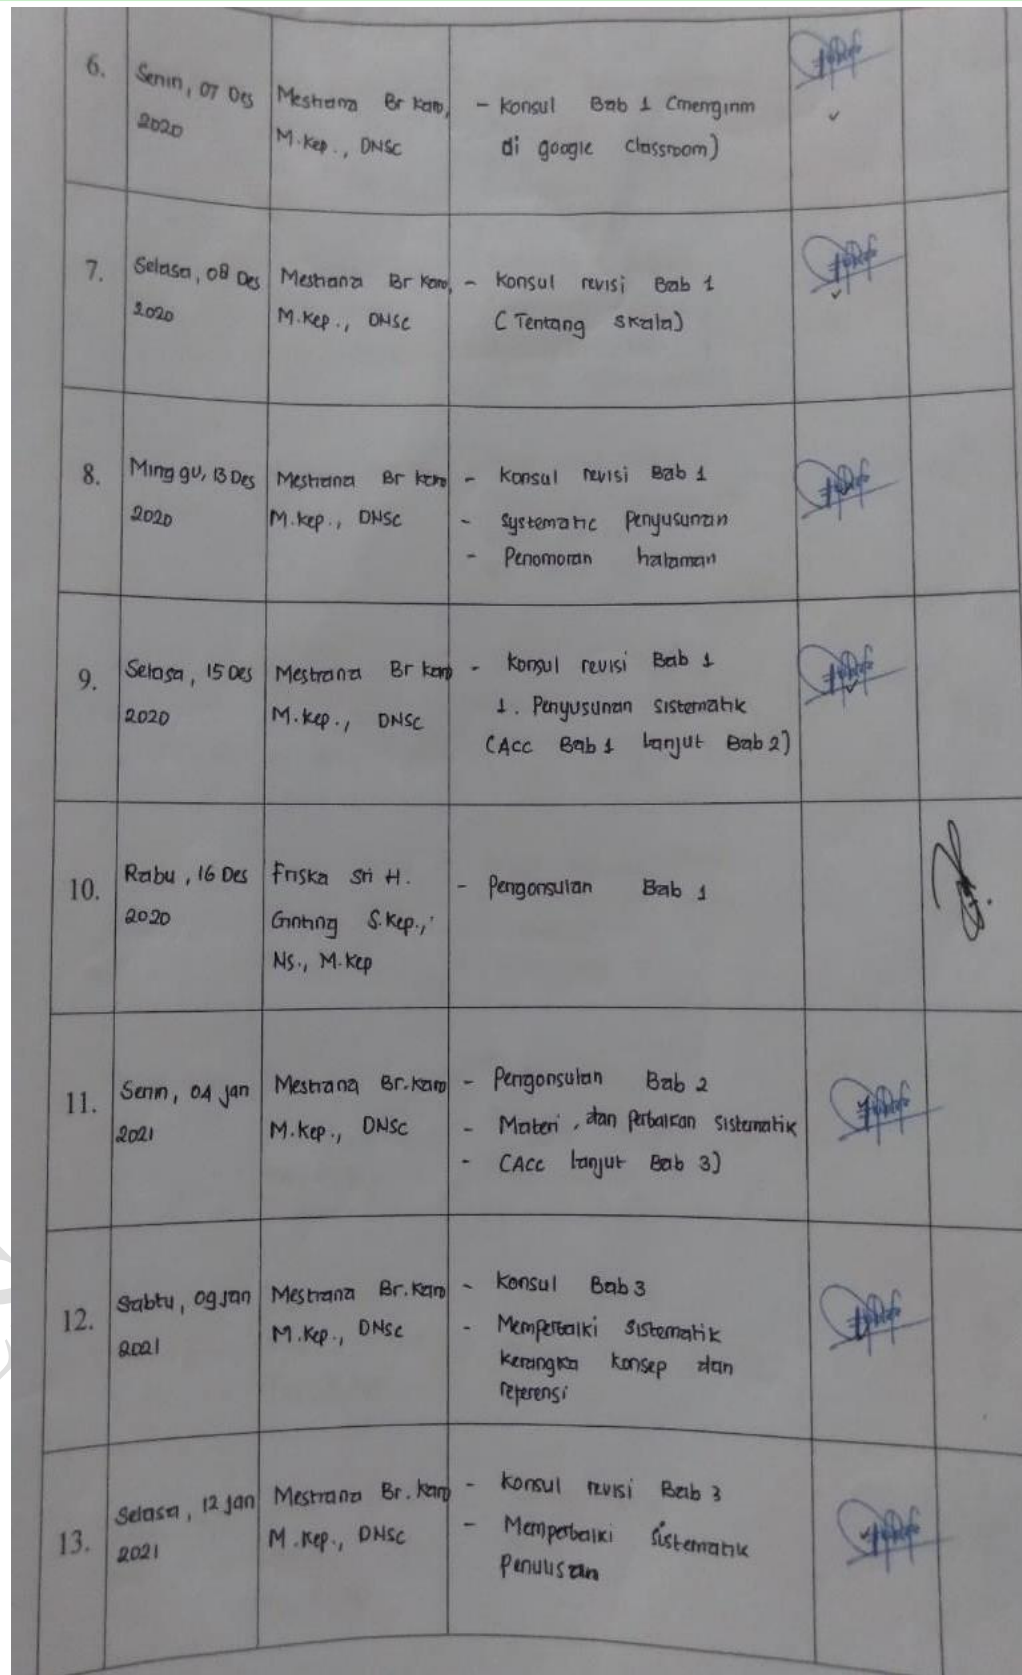 6.
Senin, 07 Des
2020
Mestiana Br Karo,
M.Kep., DNSC
- Konsul Bab 1 (mengirim
di google classroom)
7.
Selasa, 08 Des
2020
Mestiana Br Karo,
M.Kep., DNSC
- Konsul revisi Bab 1
(Tentang skala)
8.
Minggu, 13 Des
2020
Mestiana Br Karo
M.Kep., DNSC
- Konsul revisi Bab 1
- Systematic Penyusunan
- Penomoran halaman
9.
Selasa, 15 Des
2020
Mestiana Br Karo
M.Kep., DNSC
- Konsul revisi Bab 1
1. Penyusunan sistematik
(Acc Bab 1 lanjut Bab 2)
10.
Rabu, 16 Des
2020
Friska Sri H.
Ginting S.Kep.,
Ns., M.Kep
- Pengonsulan Bab 1
11.
Senin, 04 Jan
2021
Mestiana Br.Karo
M.Kep., DNSC
- Pengonsulan Bab 2
- Materi, dan Perbaikan sistematik
- (Acc lanjut Bab 3)
12.
Sabtu, 09 Jan
2021
Mestiana Br.Karo
M.Kep., DNSC
- Konsul Bab 3
- Memperbaiki Sistematik
kerangka konsep dan
referensi
13.
Selasa, 12 Jan
2021
Mestiana Br.Karo
M.Kep., DNSC
- Konsul revisi Bab 3
- Memperbaiki sistematik
Penulisan